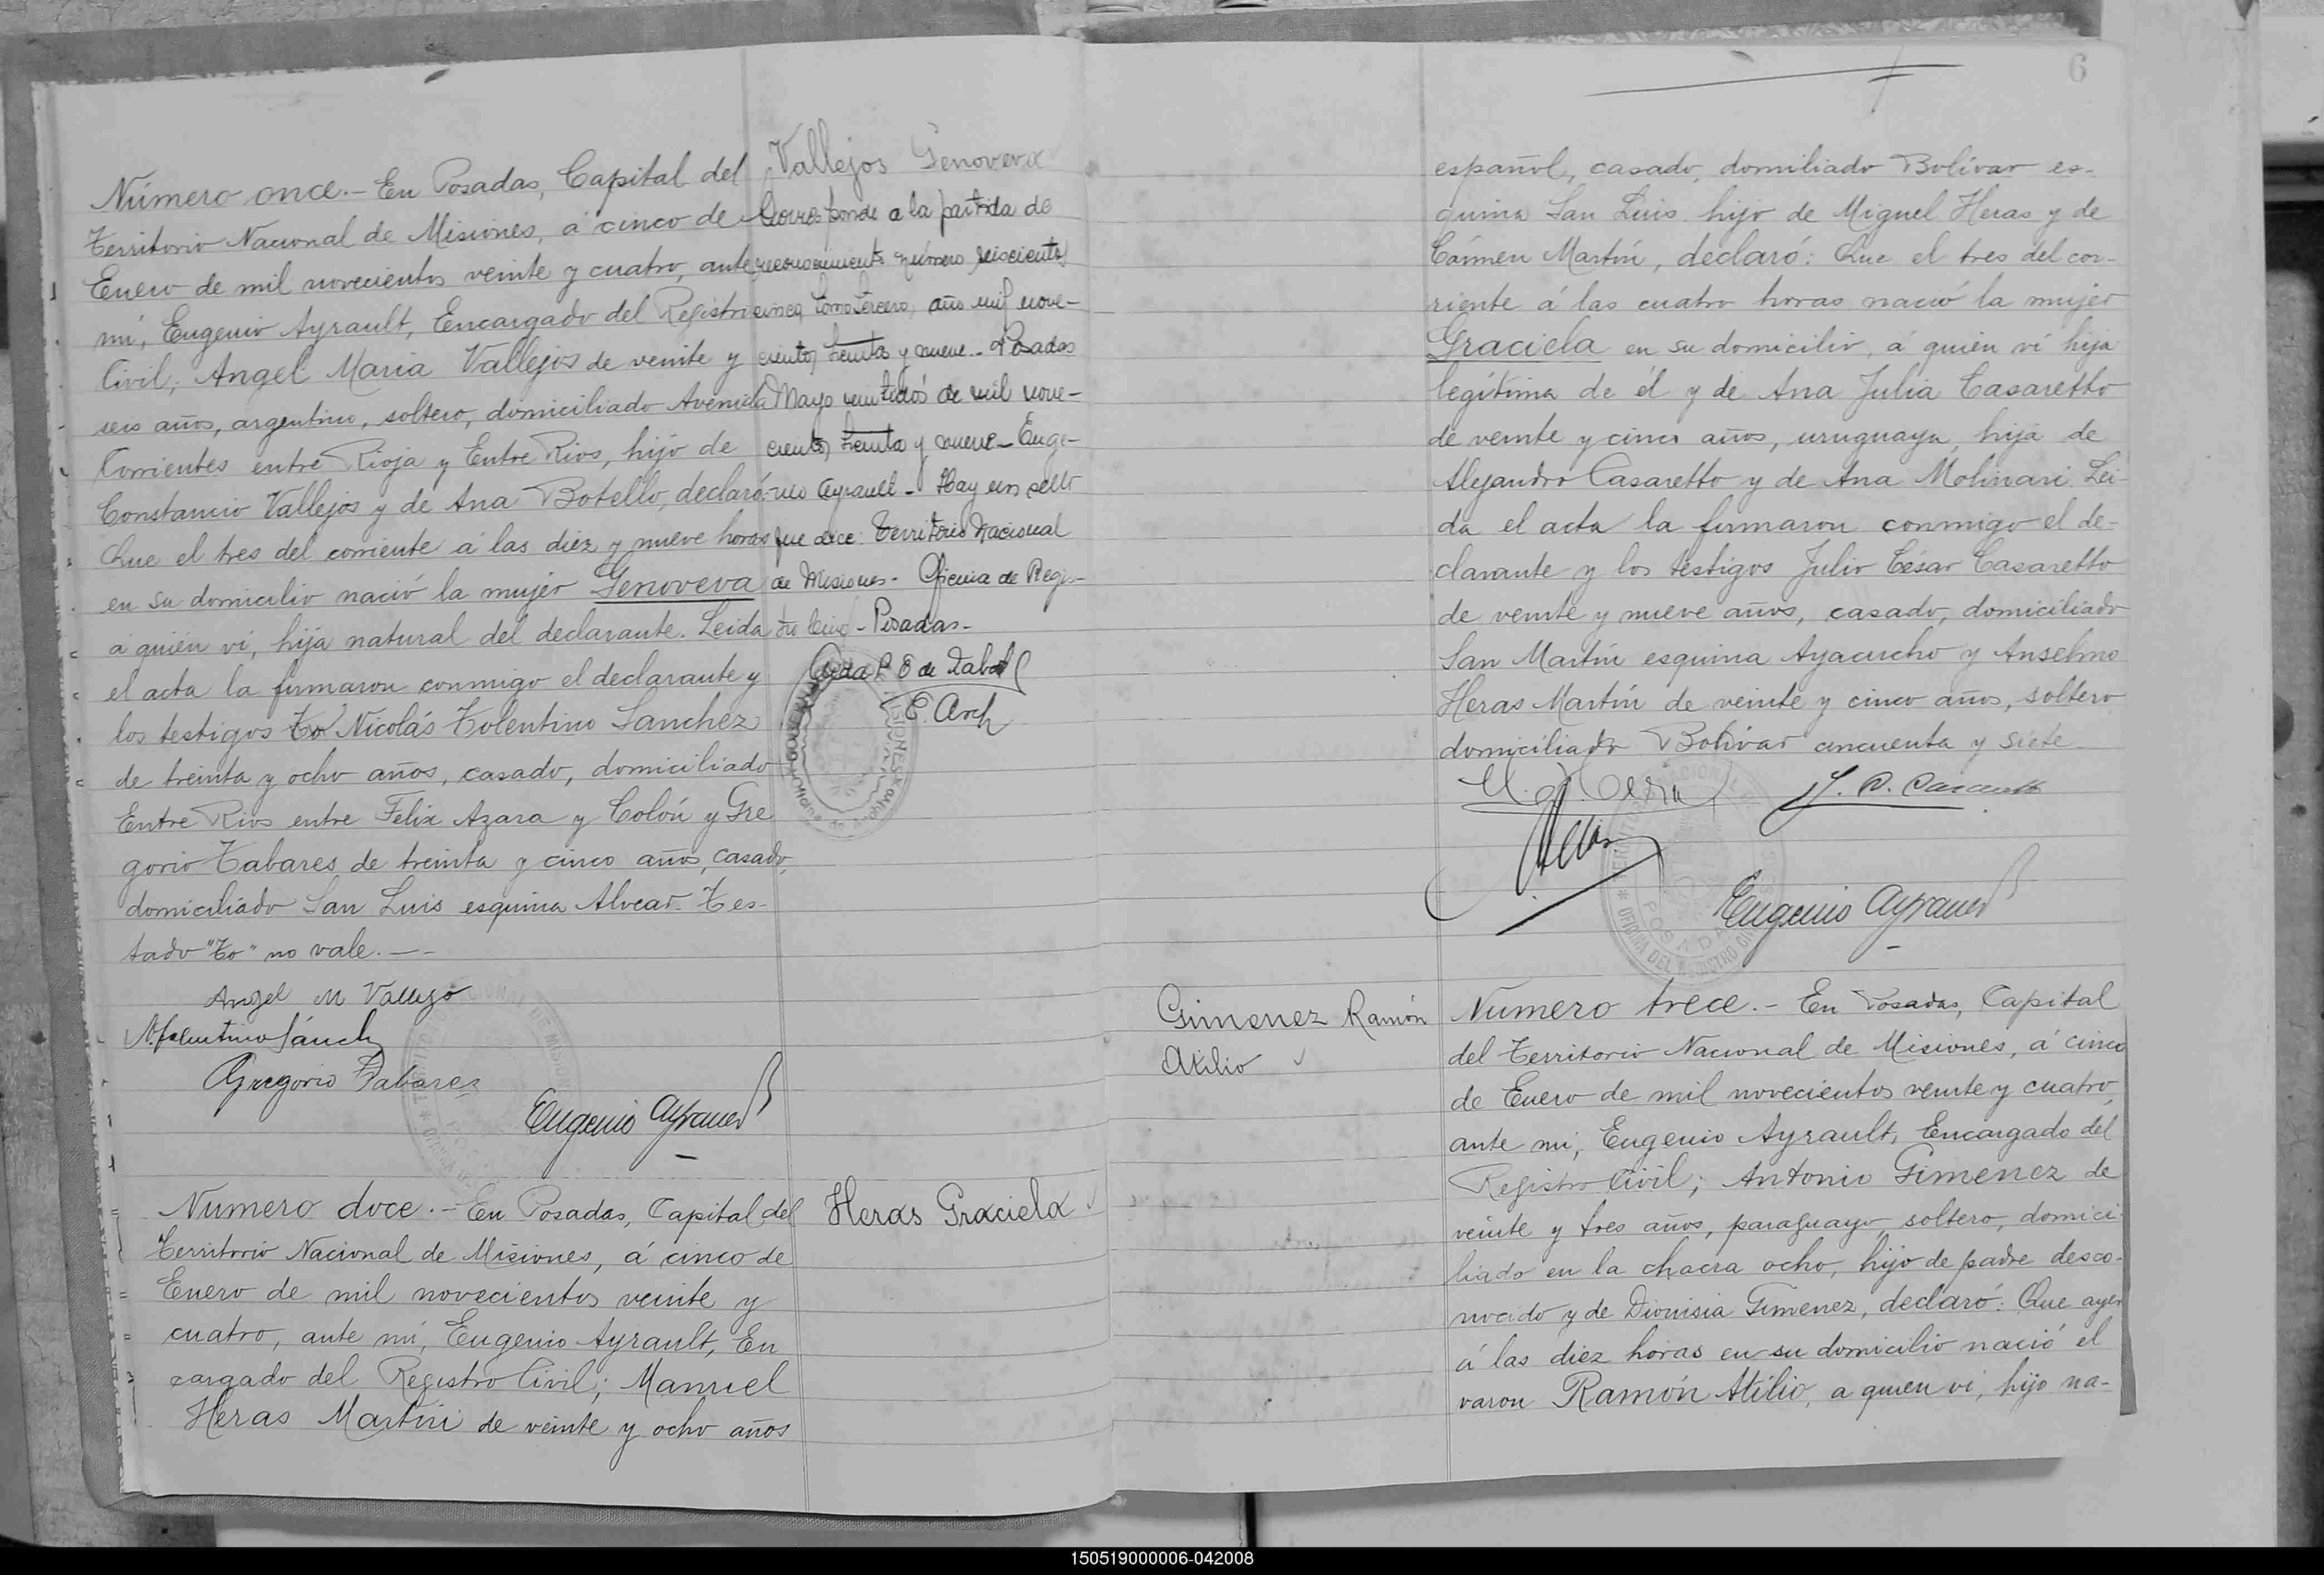 Número once.- En Posadas, Capital del
Territorio Nacional de Misiones, á cinco de
Enero de mil novecientos veinte y cuatro, ante
mi, Eugenio Ayrault, Encargado del Registro
Civil; Angel Maria Vallejos de veinte y
seis años, argentino, soltero, domiciliado Avenida
Corrientes entre Rioja y Entre Rios, hijo de
Constancio Vallejos y de Ana Botello, declaró:
Que el tres del corriente á las diez y nueve horas
en su domicilio nació la mujer Genoveva
a quién ví, hija natural del declarante. Leida
el acta la firmaron conmigo el declarante y
los testigos To Nicolás Tolentino Sanchez
de treinta y ocho años, casado, domiciliado
Entre Rios entre Felix Azara y Colón y Gre
gorio Tabares de treinta y cinco años, casado,
domiciliado San Luis esquina Alvear. Tes-
tado "To" no vale.—-
Angel M Vallejo
N. Tolentino Sánch
Gregorio Tabares
Eugenio Ayrault
Vallejos Genoveva
Corresponde a la partida de
reconocimiento número seiscientos
cinco, tomo tercero, año mil nove-
cientos treinta y nueve.- Posadas
Mayo veintidós de mil nove-
cientos treinta y nueve- Euge-
nio Ayrault - Hay un sello
que dice: Territorio Nacional
de Misiones - Oficina de Regis-
tro Civil - Posadas-
E. Arch
Numero doce.- En Posadas, Capital del
Territorio Nacional de Misiones, á cinco de
Enero de mil novecientos veinte y
cuatro, ante mi, Eugenio Ayrault, En
cargado del Registro Civil; Manuel
Heras Martín de veinte y ocho años
Heras Graciela
6
español, casado, domiliado Bolívar es-
quina San Luis hijo de Miguel Heras y de
Cármen Martín, declaró: Que el tres del cor-
riente á las cuatro horas nació la mujer
Graciela en su domicilio, á quién ví hija
legítima de él y de Ana Julia Casaretto
de veinte y cinco años, uruguaya, hija de
Alejandro Casaretto y de Ana Molinari. Lei-
da el acta la firmaron conmigo el de-
clarante y los testigos Julio César Casaretto
de veinte y nueve años, casado, domiciliado
San Martín esquina Ayacucho y Anselmo
Heras Martín de veinte y cinco años, soltero
domiciliado Bolívar cincuenta y siete
Eugenio Ayrault
Gimenez Ramón
Atilio
Numero trece.- En Posadas, Capital
del Territorio Nacional de Misiones, á cinco
de Enero de mil novecientos veinte y cuatro,
ante mi, Eugenio Ayrault, Encargado del
Registro Civil; Antonio Gimenez de
veinte y tres años, paraguayo, soltero, domici-
liado en la chacra ocho, hijo de padre desco-
nocido y de Dionisia Gimenez, declaró: Que ayer
á las diez horas en su domicilio nació el
varon Ramón Atilio, a quien ví, hijo na-
150519000006-042008